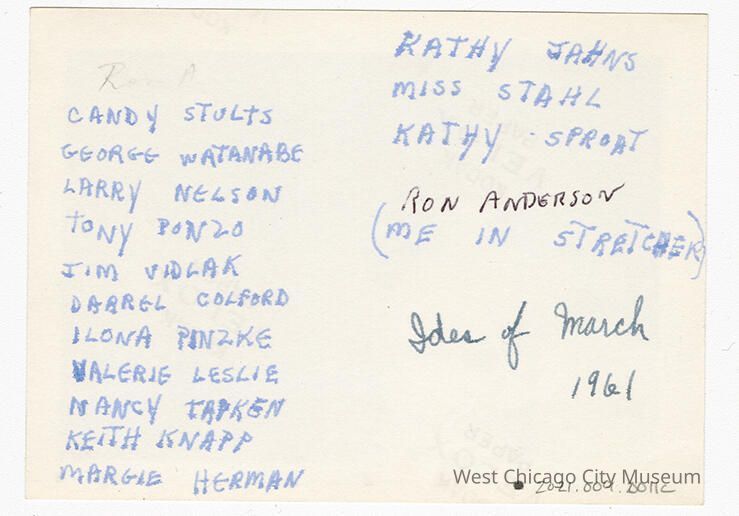 Ron A
CANDY STULTS
GEORGE WATANABE
LARRY NELSON
TONY PONZO
JIM VIDLAK
DARREL COLFORD
ILONA PINZKE
VALERIE LESLIE
NANCY TAPKEN
KEITH KNAPP
MARGIE HERMAN
KATHY JAHNS
MISS STAHL
KATHY SPROAT
RON ANDERSON
(ME IN STRETCHER)
Ides of March
1961
West Chicago City Museum